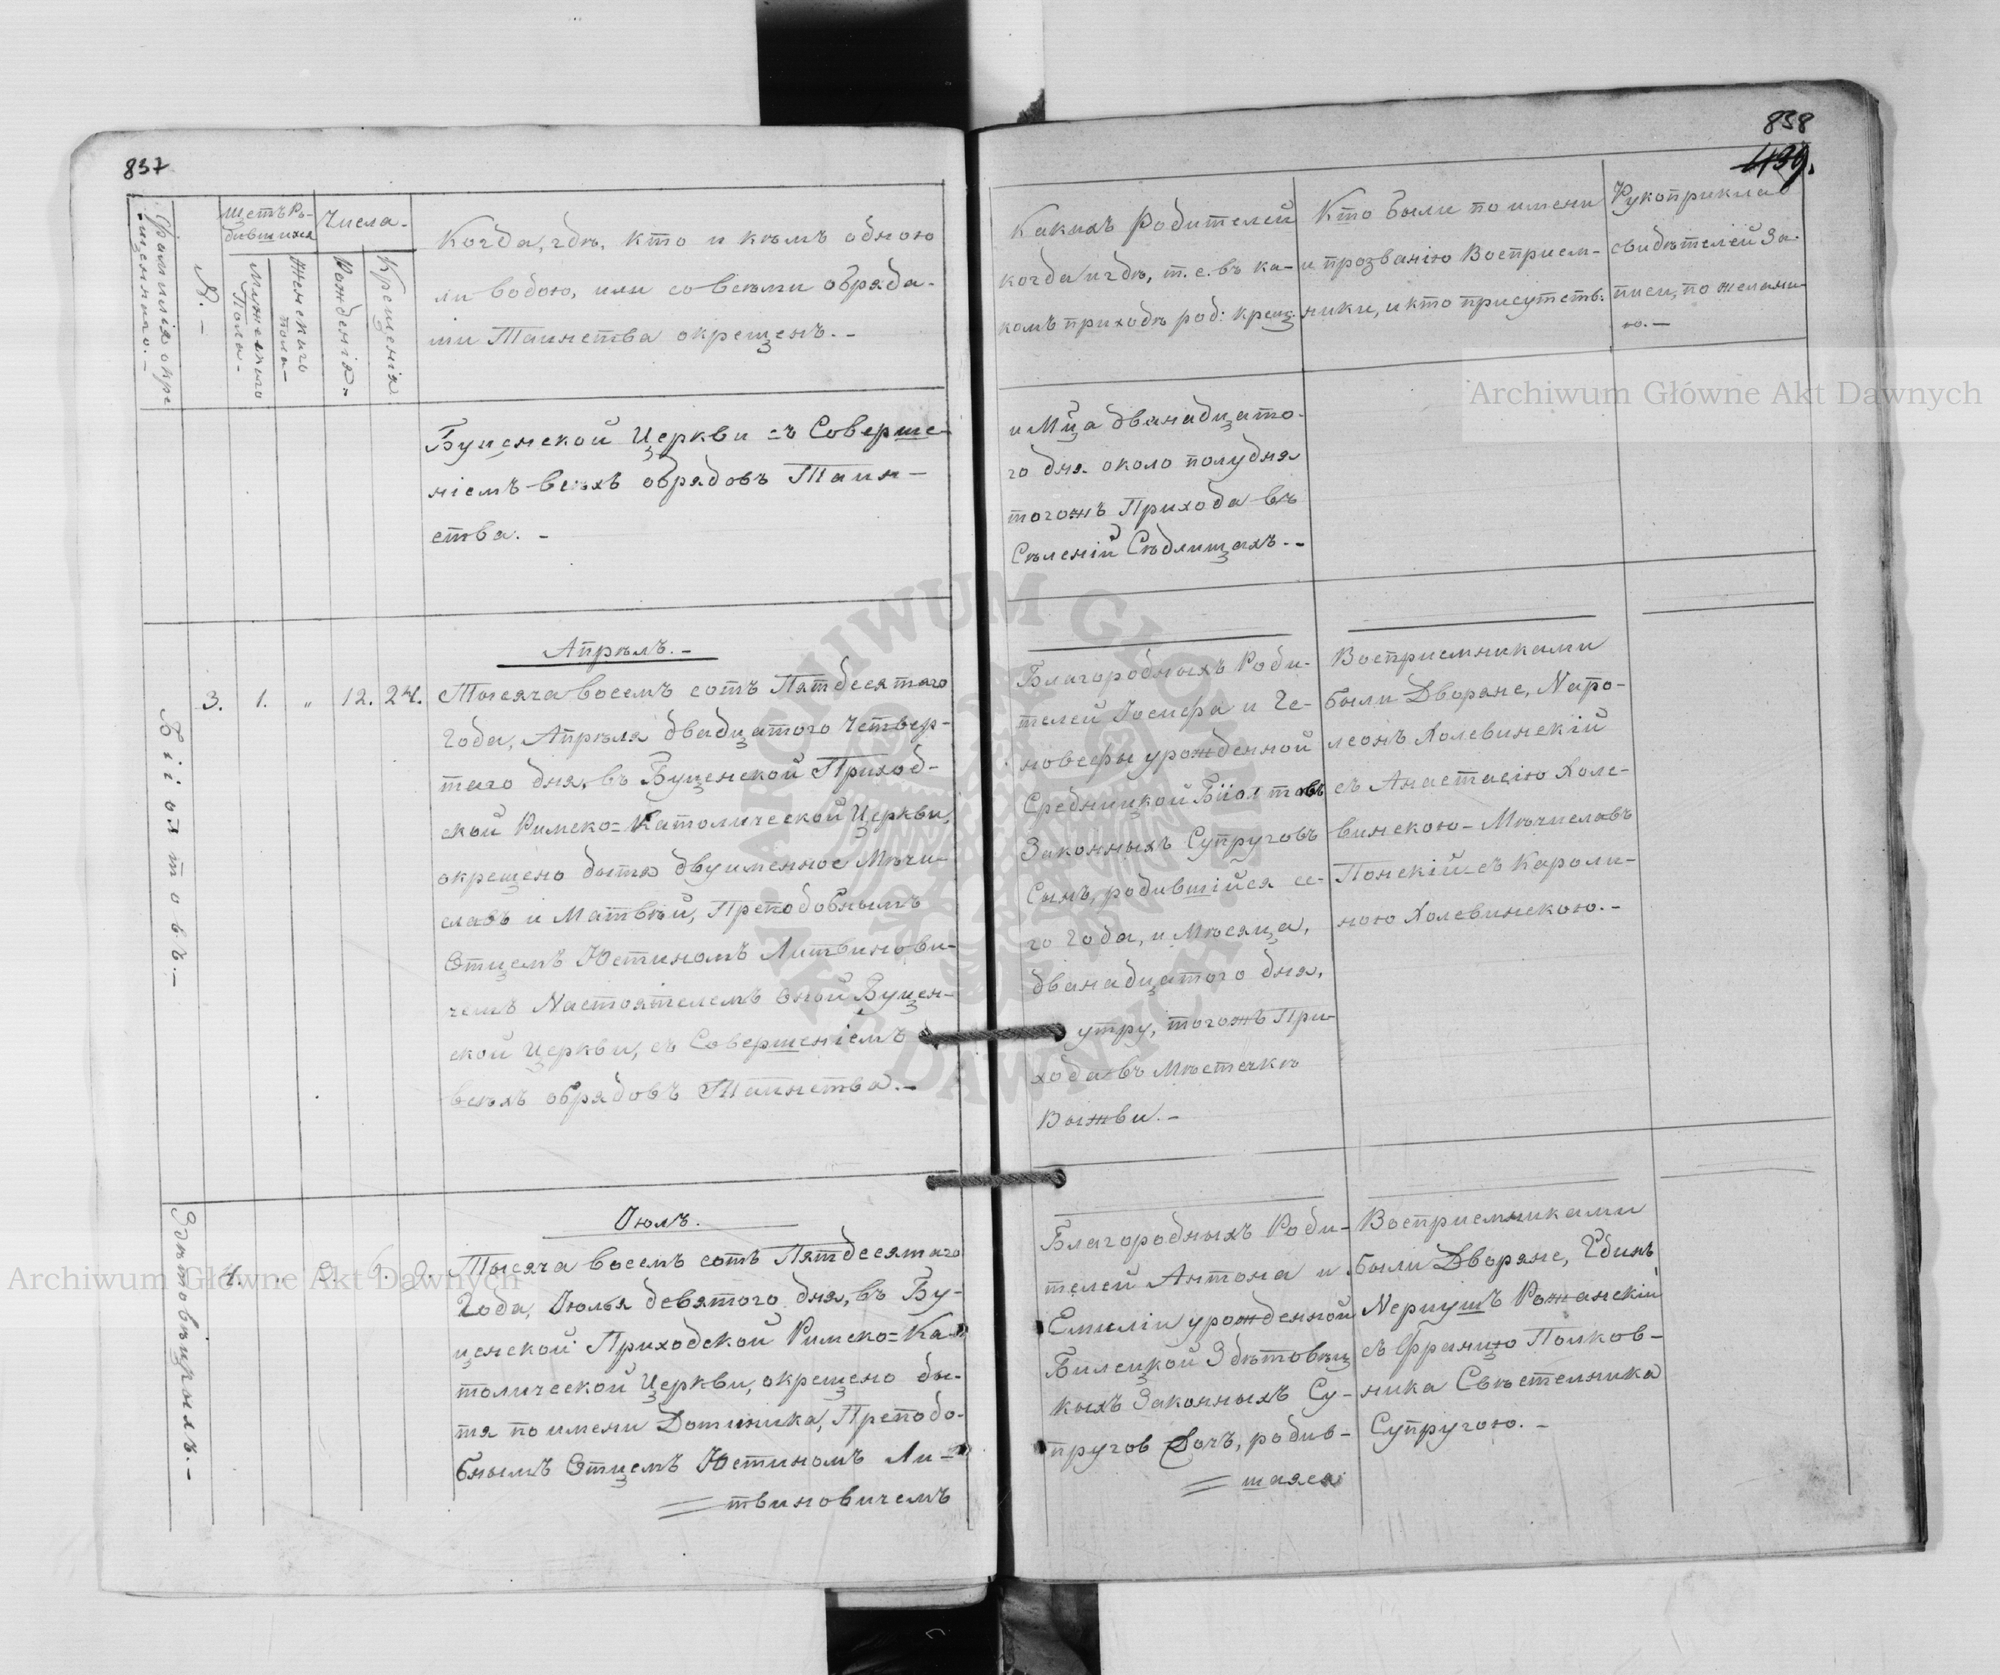 837
Фамилія окре-
щеннаго. -
№. -
Щетъ Ро-
дившихся
Мужескаго
Пола. -
Женскаго
пола -
Числа. -
Рожденія. -
Крещенія
Когда, гдѣ, кто и кѣмъ одною
ли водою, или со всѣми обряда-
ми Таинства окрещенъ. -
Буценской Церкви съ Соверше-
ніемъ всѣхъ обрядовъ Таин-
ства. -
Апрѣль. -
3. 1. " 12. 24.
Тысяча восемъ сотъ Пятдесятаго
Года, Апрѣля двадцатого Четвер-
таго дня, въ Буценской Приход-
ской Римско=Католической Церкви,
окрещено дитя двуименное Мѣчи-
славъ и Матвѣй, Преподобнымъ
Отцемъ Юстиномъ Литвинови-
чемъ Настоятелемъ оной Буцен-
ской Церкви, съ Совершеніемъ
всѣхъ обрядовъ Таинства. -
Іюль.
4. "
Тысяча восемъ сотъ Пятдесятаго
Года, Іюлья девятого дня, въ Бу-
ценской Приходской Римско=Ка-
толической Церкви, окрещено ди-
тя по имени Доминика, Преподо-
бнымъ Отцемъ Юстиномъ Ли-
твиновичемъ
838
439.
Какихъ Родителей
когда и гдѣ, т. е. въ ка-
комъ приходѣ род: крещ:
Кто были по имени
и прозванію Восприем-
ники, и кто присутств:
Рукоприкла
свидѣтелей За-
писи, по желани-
ю. -
и Мца дванадцато-
го дня около полудня
тогожъ Прихода въ
Сѣленій Сѣдлищахъ. -
Благородныхъ Роди-
телей Іосифа и Ге-
новефы урожденной
Средницкой
Законныхъ Супруговъ
Сынъ, родившійся се-
го Года, и Мѣсяца,
дванадцатого дня,
утру, тогожъ При-
хода въ Мѣстечкѣ
Выжви. -
Восприемниками
были Дворяне, Напо-
леонъ Холевинскій
съ Анастасію Холе-
винскою - Мѣчиславъ
Понскій съ Кароли-
ною Холевинскою. -
Благородныхъ Роди-
телей Антона и
Емиліи урожденной
Билецкой Збѣтовѣц
кихъ Законныхъ Су-
пругов Дочь, родив-
шаяся
Восприемниками
были Дворяне,
съ Францію Полков-
ника Свѣстельника
Супругою. -
Archiwum Główne Akt Dawnych
Archiwum Główne Akt Dawnych
ARCHIWUM GŁÓWNE AKT DAWNYCH